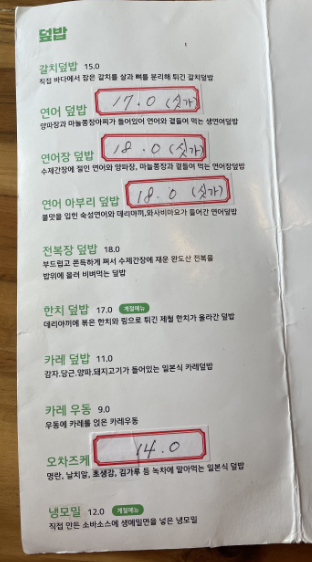 덮밥
갈치덮밥 15.0
직접 바다에서 잡은 갈치를 살과 뼈를 분리해 튀긴 갈치덮밥
연어 덮밥 17.0 (싯가)
양파장과 마늘쫑장아찌가 들어있어 연어와 곁들여 먹는 생연어덮밥
연어장 덮밥 18.0 (싯가)
수제간장에 절인 연어와 양파장, 마늘쫑장아찌와 곁들여 먹는 연어장덮밥
연어 아부리 덮밥 18.0 (싯가)
불맛을 입힌 숙성연어와 데리야끼,와사비마요가 들어간 연어덮밥
전복장 덮밥 18.0
부드럽고 쫀득하게 쪄서 수제간장에 재운 완도산 전복을
밥위에 올려 비벼먹는 덮밥
한치 덮밥 17.0 계절메뉴
데리야끼에 볶은 한치와 링으로 튀긴 제철 한치가 올라간 덮밥
카레 덮밥 11.0
감자.당근.양파.돼지고기가 들어있는 일본식 카레덮밥
카레 우동 9.0
우동에 카레를 얹은 카레우동
오차즈케 14.0
명란, 날치알, 초생강, 김가루 등 녹차에 말아먹는 일본식 덮밥
냉모밀 12.0 계절메뉴
직접 만든 소바소스에 생메밀면을 넣은 냉모밀